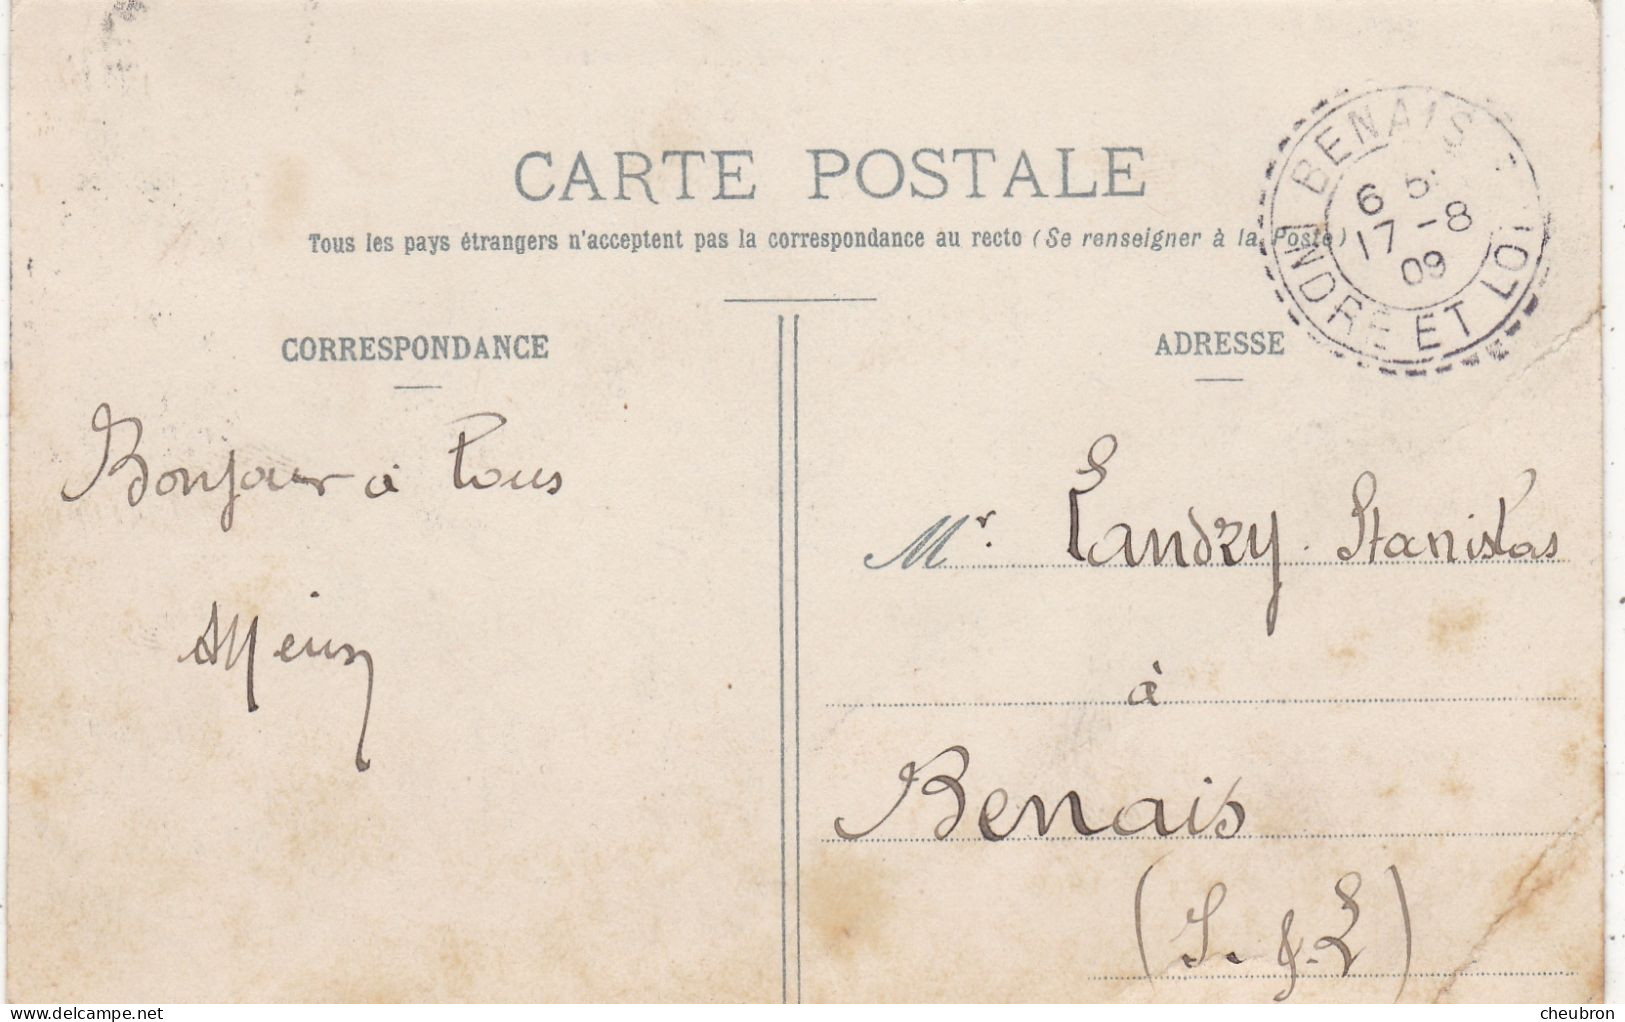 CARTE POSTALE
Tous les pays étrangers n'acceptent pas la correspondance au recto (Se renseigner à la Poste)
BENAIS
6 5
17 -8
09
INDRE ET LOI
CORRESPONDANCE
Bonjour à Tous
ADRESSE
Mr. Landry Stanislas
à
Benais
(I. & L)
delcampe.net
cheubron